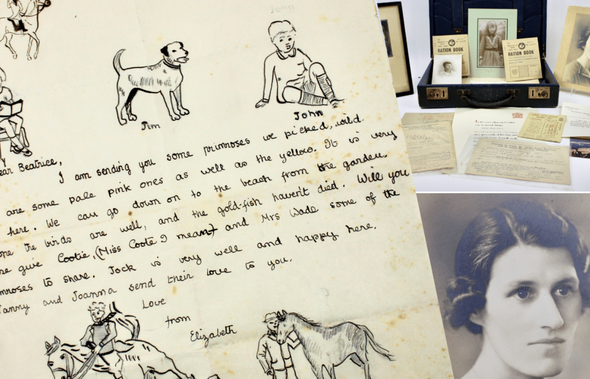 Jim
John
ear Beatrice,
I am sending you some primroses we picked, wild
are some pale pink ones as well as the yellow. It is very
here. We can go down on to the beach from the garden.
the birds are well, and the gold-fish haven't died. Will you
give Cootie, (Miss Coote I mean) and Mrs Wade some of the
mroses to share. Jock is very well and happy here.
anny and Joanna send their love to you.
Love
from
Elizabeth
RATION BOOK
RATION BOOK